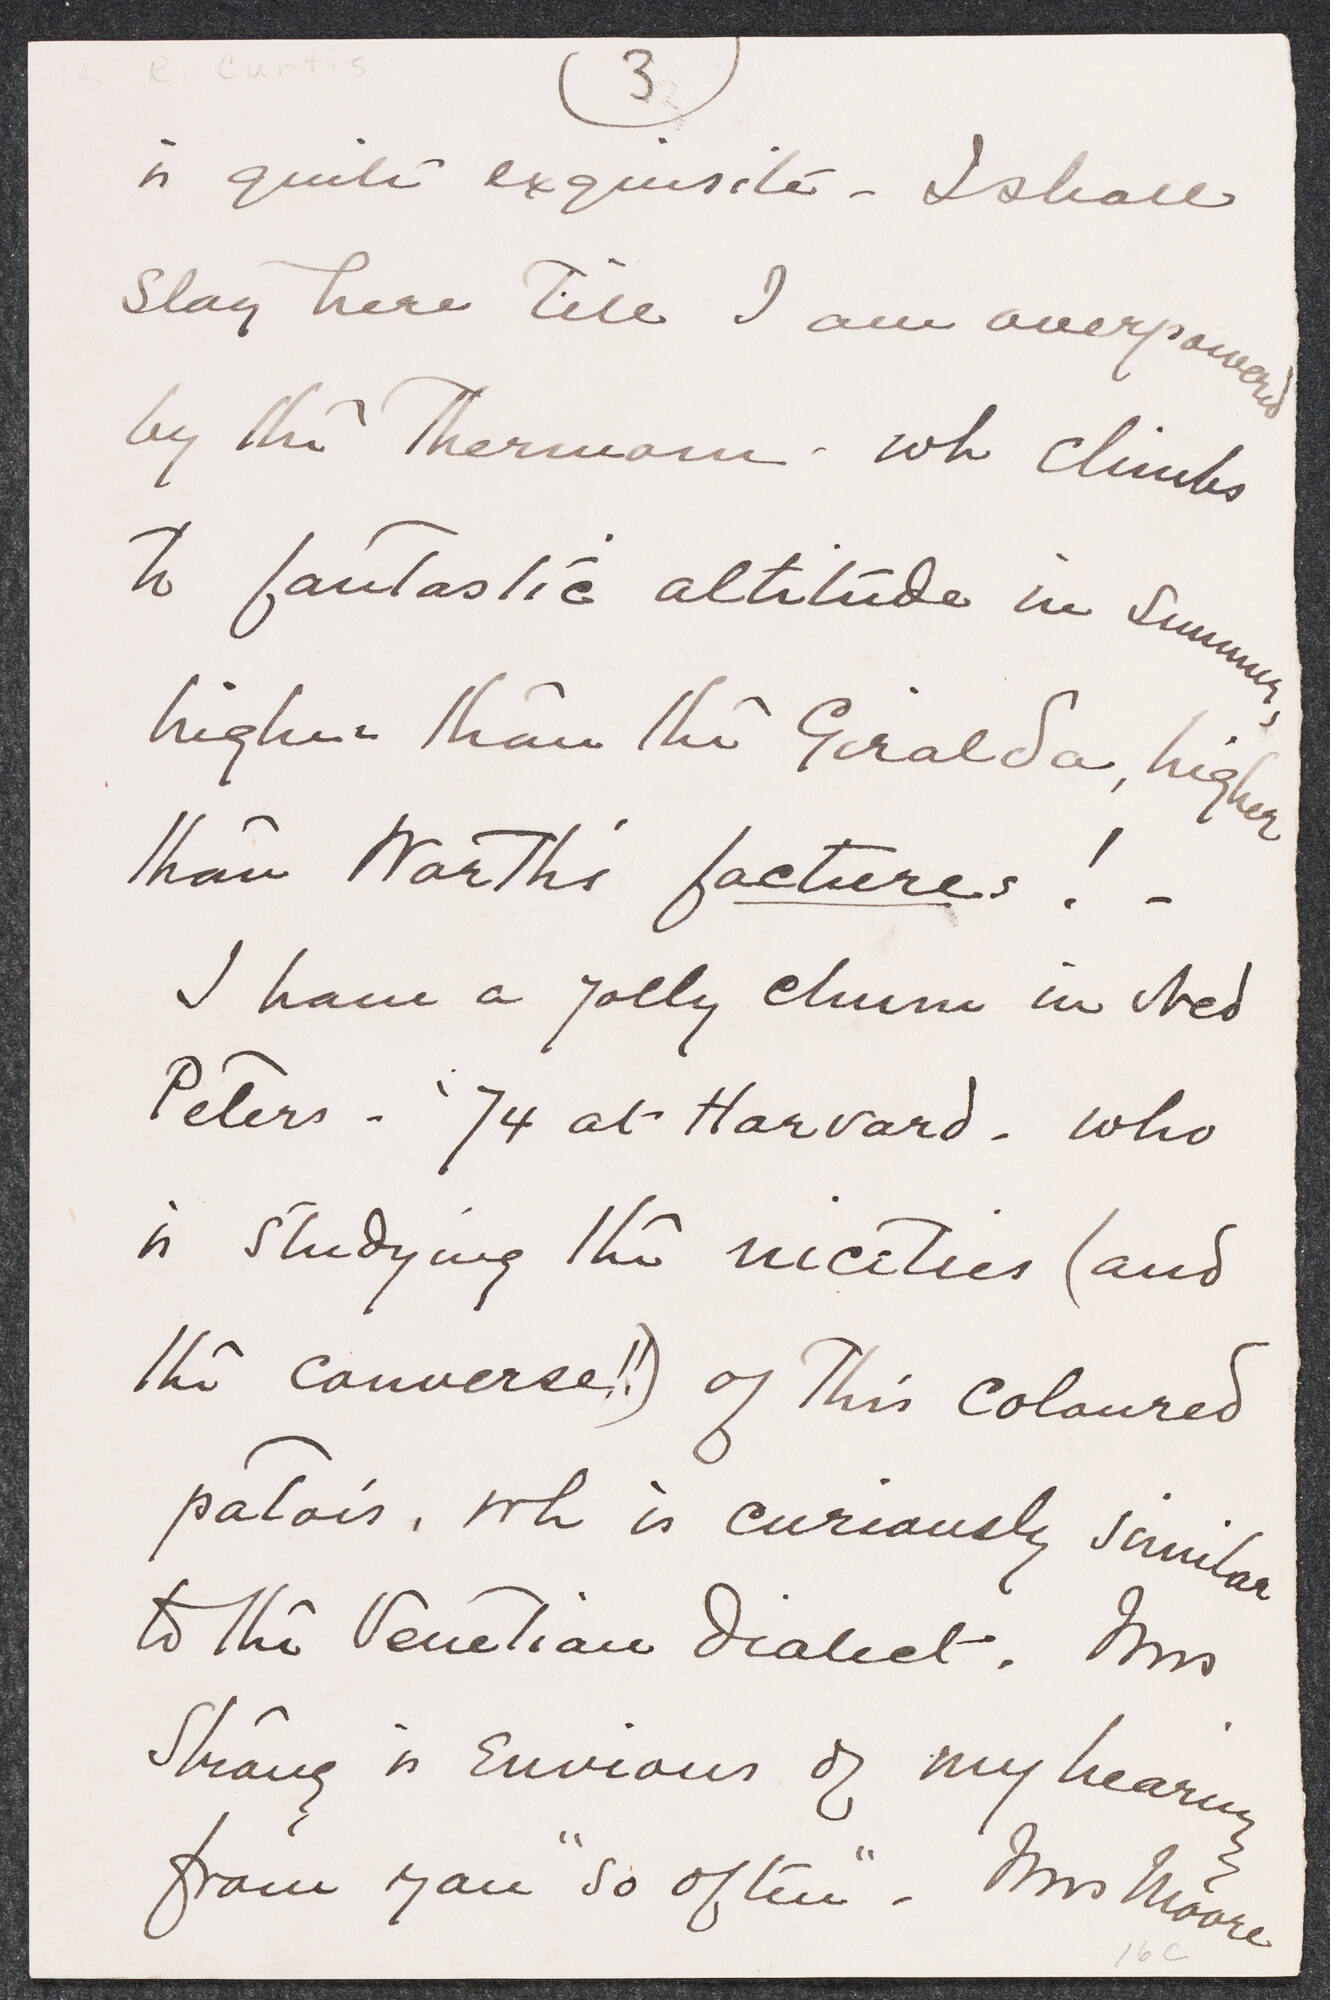 12 R. Curtis
(3)
is quite exquisite - I shall
stay here till I am overpowered
by the Thermom - wh climbs
to fantastic altitude in summer,
higher than the Giralda, higher
than Worth's factures! -
I have a jolly chum in Ned
Peters - '74 at Harvard - who
is studying the niceties (and
the converse!!) of this coloured
patois, wh is curiously similar
to the Venetian dialect. Mrs
Strong is envious of my hearing
from you "so often" - Mrs Moore
16c